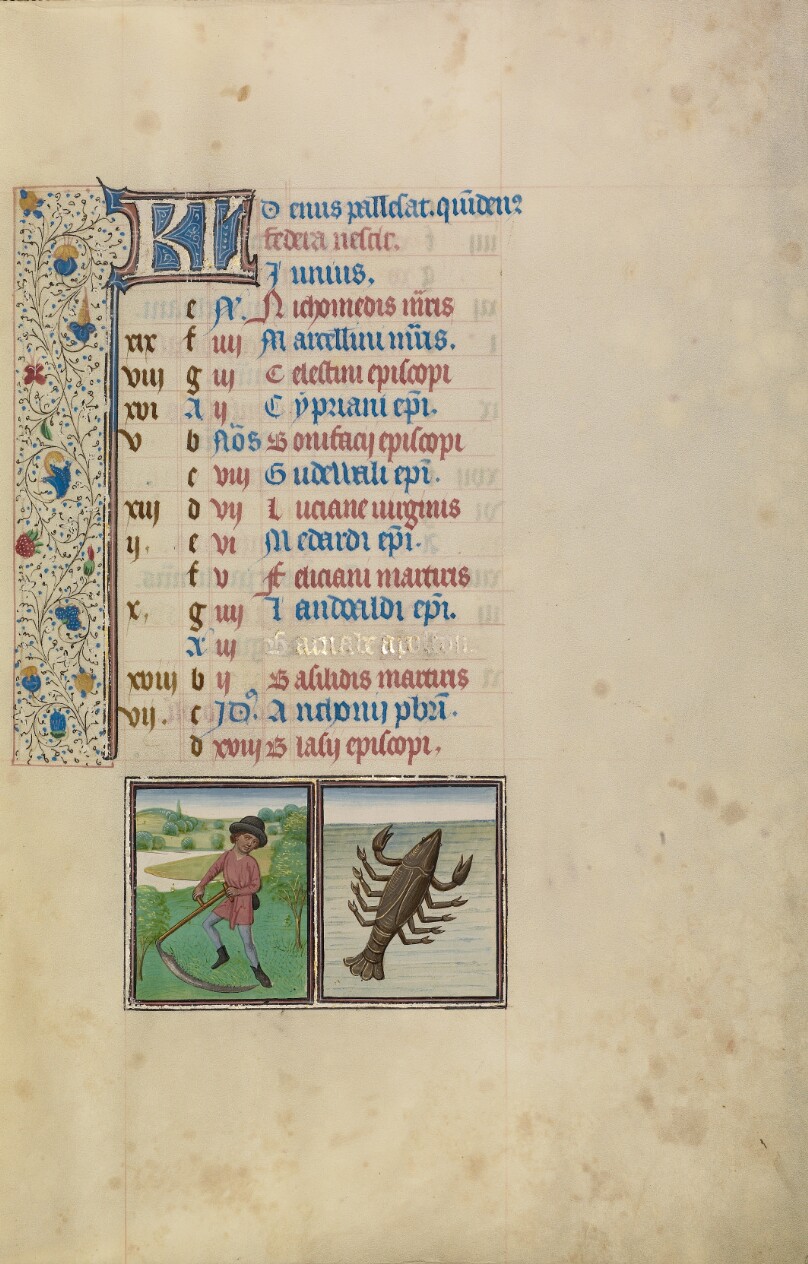 KL Denus pallescat. quindenus
federa nescit.
Junius.
e N. Nichomedis mr̄is
xix f iiij Marcellini mr̄is.
viij g iij Celestini episcopi
xvi A ij Cypriani ep̄i.
v b Nōs Bonifacij episcopi
c viij Gudewali ep̄i.
xiij d vij Luciane uirginis
ij. e vi Medardi ep̄i.
f v Feliciani martiris
x. g iiij Landoaldi ep̄i.
A iij Barnabe apostoli.
xviij b ij Basilidis martiris
vij. c Jdꝰ. Anthonij pbr̄i.
d xviij Blasij episcopi.